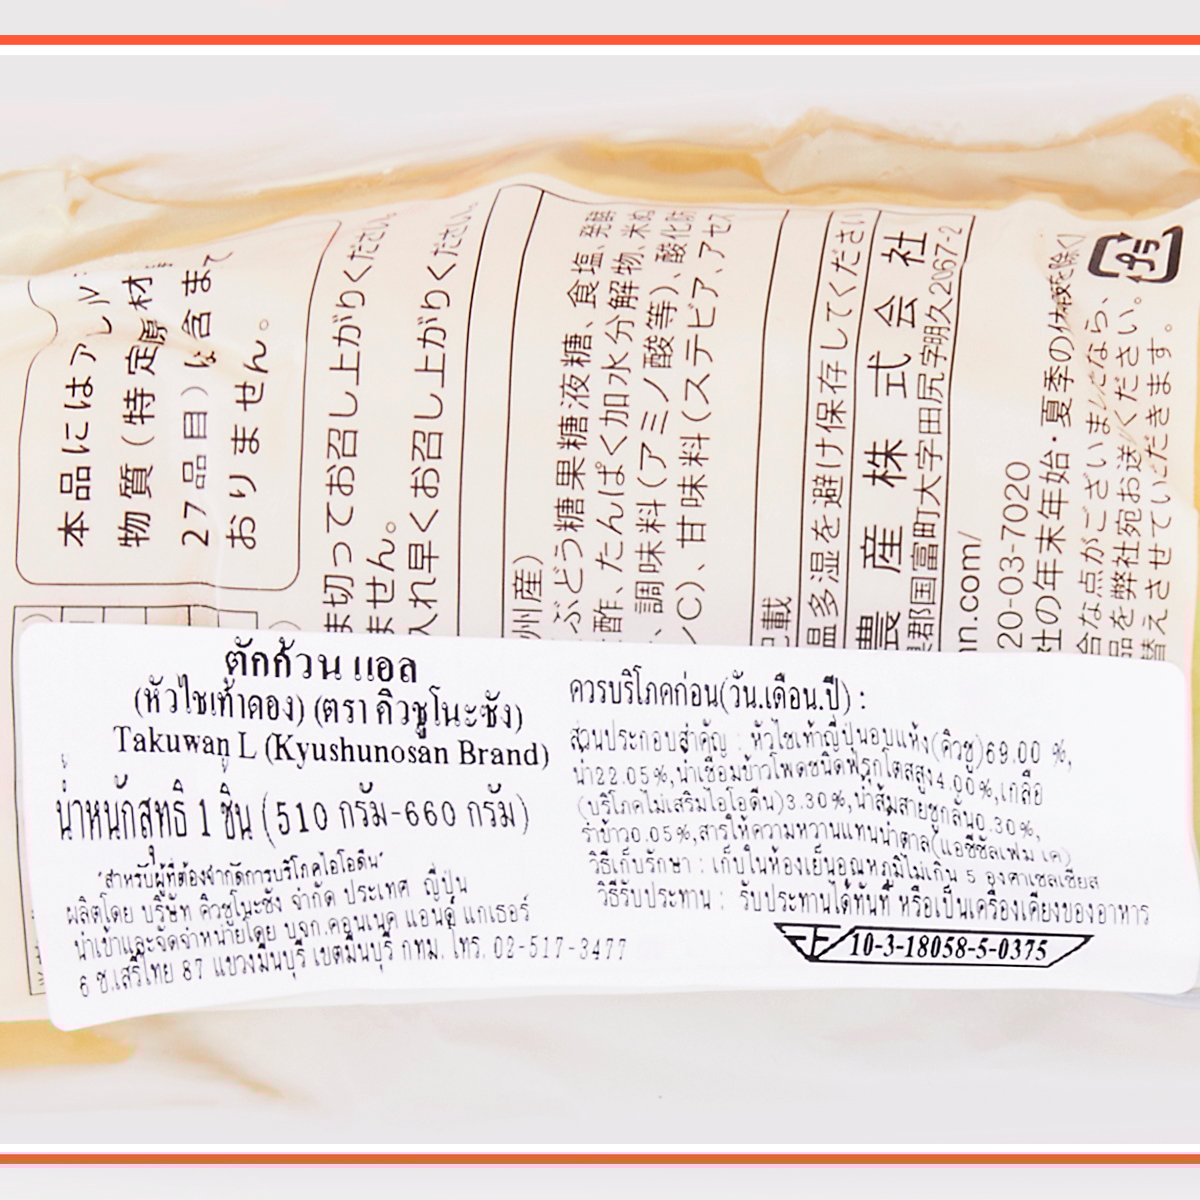 本品にはアレル
物質（特定原材
27品目）は含まて
おりません。
ま切ってお召し上がりください。
ません。
入れ早くお召し上がりください。
州産）
ぶどう糖果糖液糖、食塩、発酵
酢、たんぱく加水分解物、米ぬ
、調味料（アミノ酸等）、酸化防
C）、甘味料（ステビア、アセス
記載
温多湿を避け保存してください
農産株式会社
郡国富町大字田尻字明久2067-2
n.com/
20-03-7020
社の年末年始・夏季の休暇を除く）
含な点がございましたなら、
品を弊社宛お送りください。
替えさせていただきます。
プラ
ตักก้วน แอล
(หัวไชเท้าดอง) (ตรา คิวชูโนะซัง)
Takuwan L (Kyushunosan Brand)
น้ำหนักสุทธิ 1 ชิ้น (510 กรัม-660 กรัม)
"สำหรับผู้ที่ต้องจำกัดการบริโภคไอโอดีน"
ผลิตโดย บริษัท คิวชูโนะซัง จำกัด ประเทศ ญี่ปุ่น
นำเข้าและจัดจำหน่ายโดย บจก.คอนเนค แอนด์ แกเธอร์
6 ซ.เสรีไทย 87 แขวงมีนบุรี เขตมีนบุรี กทม. โทร. 02-517-3477
ควรบริโภคก่อน(วัน.เดือน.ปี) :
ส่วนประกอบสำคัญ : หัวไชเท้าญี่ปุ่นอบแห้ง(คิวชู)69.00 %,
น้ำ22.05%,น้ำเชื่อมข้าวโพดชนิดฟรุกโตสสูง4.00%,เกลือ
(บริโภคไม่เสริมไอโอดีน)3.30%,น้ำส้มสายชูกลั่น0.30%,
รำข้าว0.05%,สารให้ความหวานแทนน้ำตาล(แอซีซัลเฟม เค)
วิธีเก็บรักษา : เก็บในห้องเย็นอุณหภูมิไม่เกิน 5 องศาเซลเซียส
วิธีรับประทาน : รับประทานได้ทันที หรือเป็นเครื่องเคียงของอาหาร
10-3-18058-5-0375